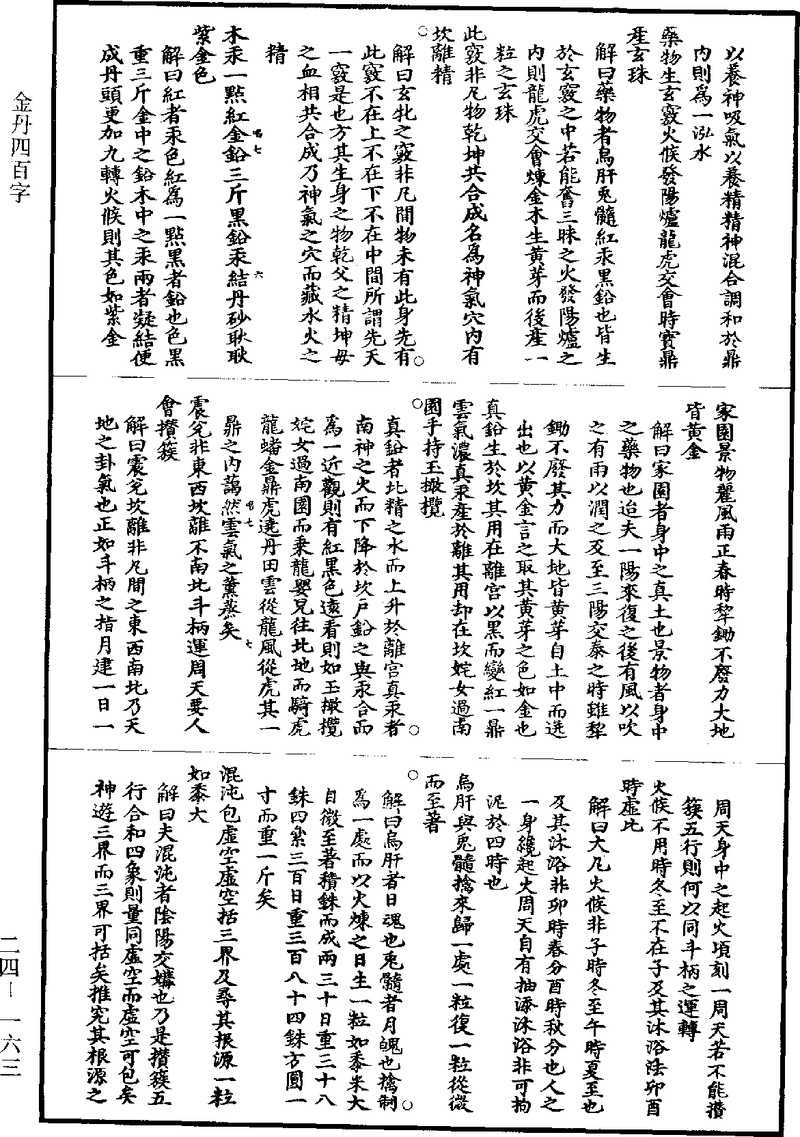 金丹四百字
二四－一六三
以養神吸氣以養精精神混合調和於鼎
內則為一泓水
藥物生玄竅火候發陽爐龍虎交會時寶鼎
產玄珠
解曰藥物者烏肝兎髓紅汞黑鉛也皆生
於玄竅之中若能奮三昧之火發陽爐之
內則龍虎交會煉金木生黃芽而後產一
粒之玄珠
此竅非凡物乾坤共合成名為神氣穴內有
坎離精
解曰玄牝之竅非凡間物未有此身先有
此竅不在上不在下不在中間所謂先天
一竅是也方其生身之物乾父之精坤母
之血相共合成乃神氣之穴而藏水火之
精
木汞一點紅金鉛三斤黑鉛汞結丹砂耿耿
紫金色
解曰紅者汞色紅為一點黑者鉛也色黑
重三斤金中之鉛木中之汞兩者凝結便
成丹頭更加九轉火候則其色如紫金
家園景物麗風雨正春時犂鋤不廢力大地
皆黃金
解曰家園者身中之真土也景物者身中
之藥物也迨夫一陽來復之後有風以吹
之有雨以潤之及至三陽交泰之時雖犂
鋤不廢其力而大地皆黃芽自土中而迸
出也以黃金言之取其黃芽之色如金也
真鉛生於坎其用在離宮以黑而變紅一鼎
雲氣濃真汞產於離其用却在坎姹女過南
園手持玉橄欖
真鉛者北精之水而上升於離宮真汞者
南神之火而下降於坎戶鉛之與汞合而
為一近觀則有紅黑色遠看則如玉橄欖
姹女過南園而乘龍嬰兒往北地而騎虎
龍蟠金鼎虎遶丹田雲從龍風從虎其一
鼎之內藹然雲氣之薰蒸矣
震兌非東西坎離不南北斗柄運周天要人
會攢簇
解曰震兌坎離非凡間之東西南北乃天
地之卦氣也正如斗柄之指月建一日一
周天身中之起火頃刻一周天若不能攢
簇五行則何以同斗柄之運轉
火候不用時冬至不在子及其沐浴法卯酉
時虛比
解曰大凡火候非子時冬至午時夏至也
及其沐浴非卯時春分酉時秋分也人之
一身纔起火周天自有抽添沐浴非可拘
泥於四時也
烏肝與兎髓擒來歸一處一粒復一粒從微
而至著
解曰烏肝者日魂也兎髓者月魄也擒制
為一處而以火煉之日生一粒如黍米大
自微至著積銖而成兩三十日重三十八
銖四絫三百日重三百八十四銖方圓一
寸而重一斤矣
混沌包虛空虛空括三界及尋其根源一粒
如黍大
解曰夫混沌者陰陽交媾也乃是攢簇五
行合和四象則量同虛空而虛空可包矣
神遊三界而三界可括矣推究其根源之